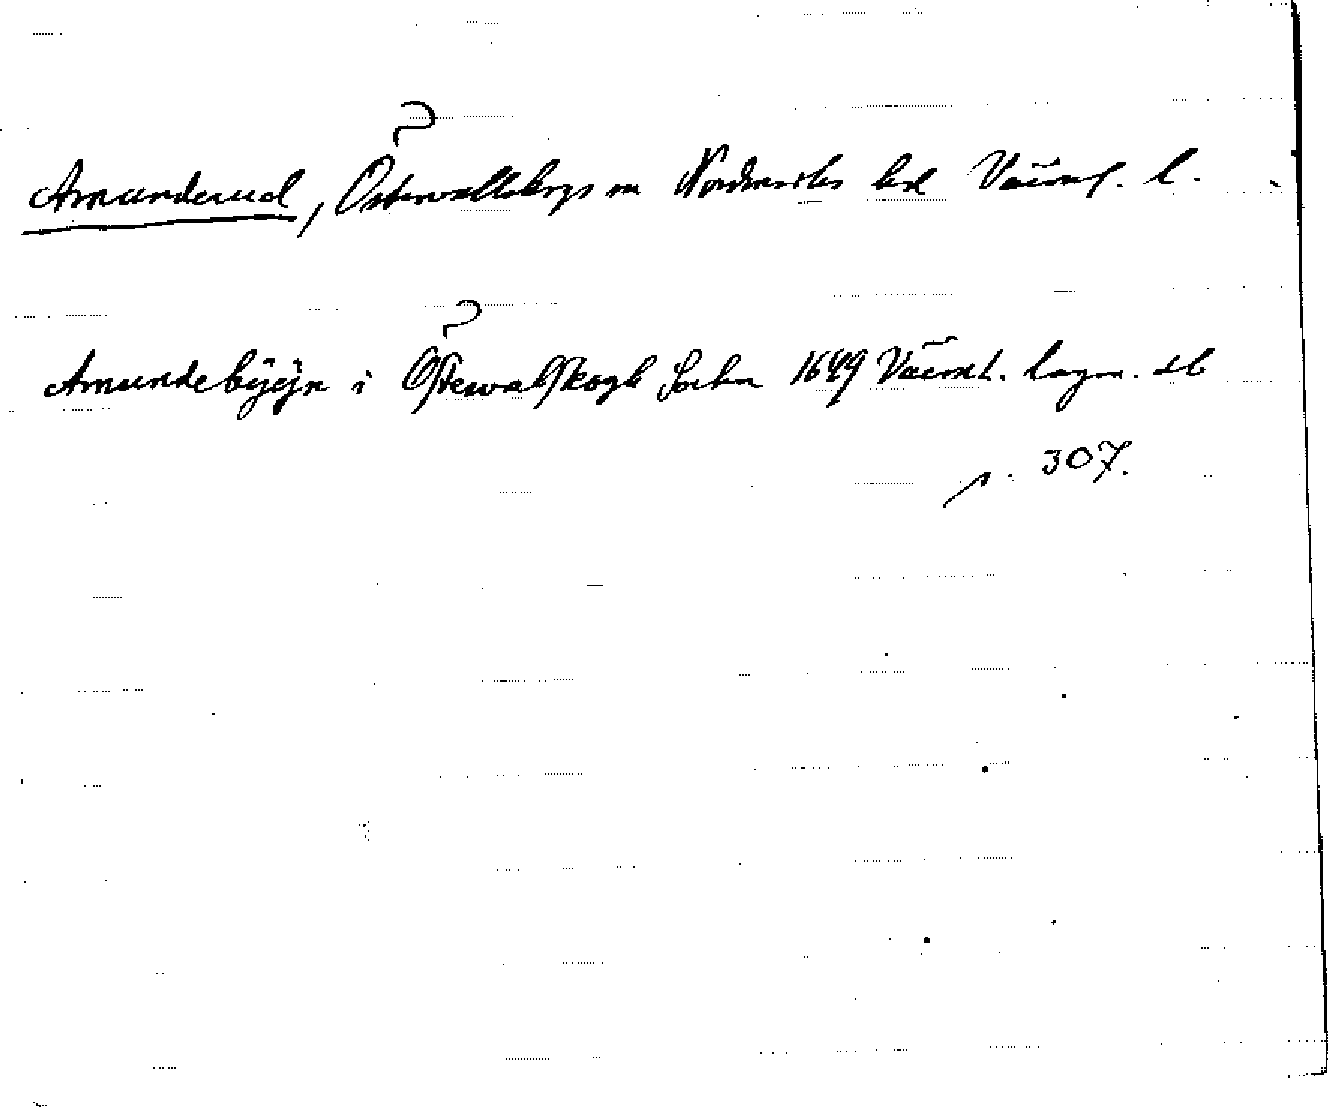 ?
Amunderud, Östervallskogs sn Nordmarks hd Värml. l.
?
Amundebyn i Östewalskogs Sochn 1649 Värml. lagm. db
p. 307.